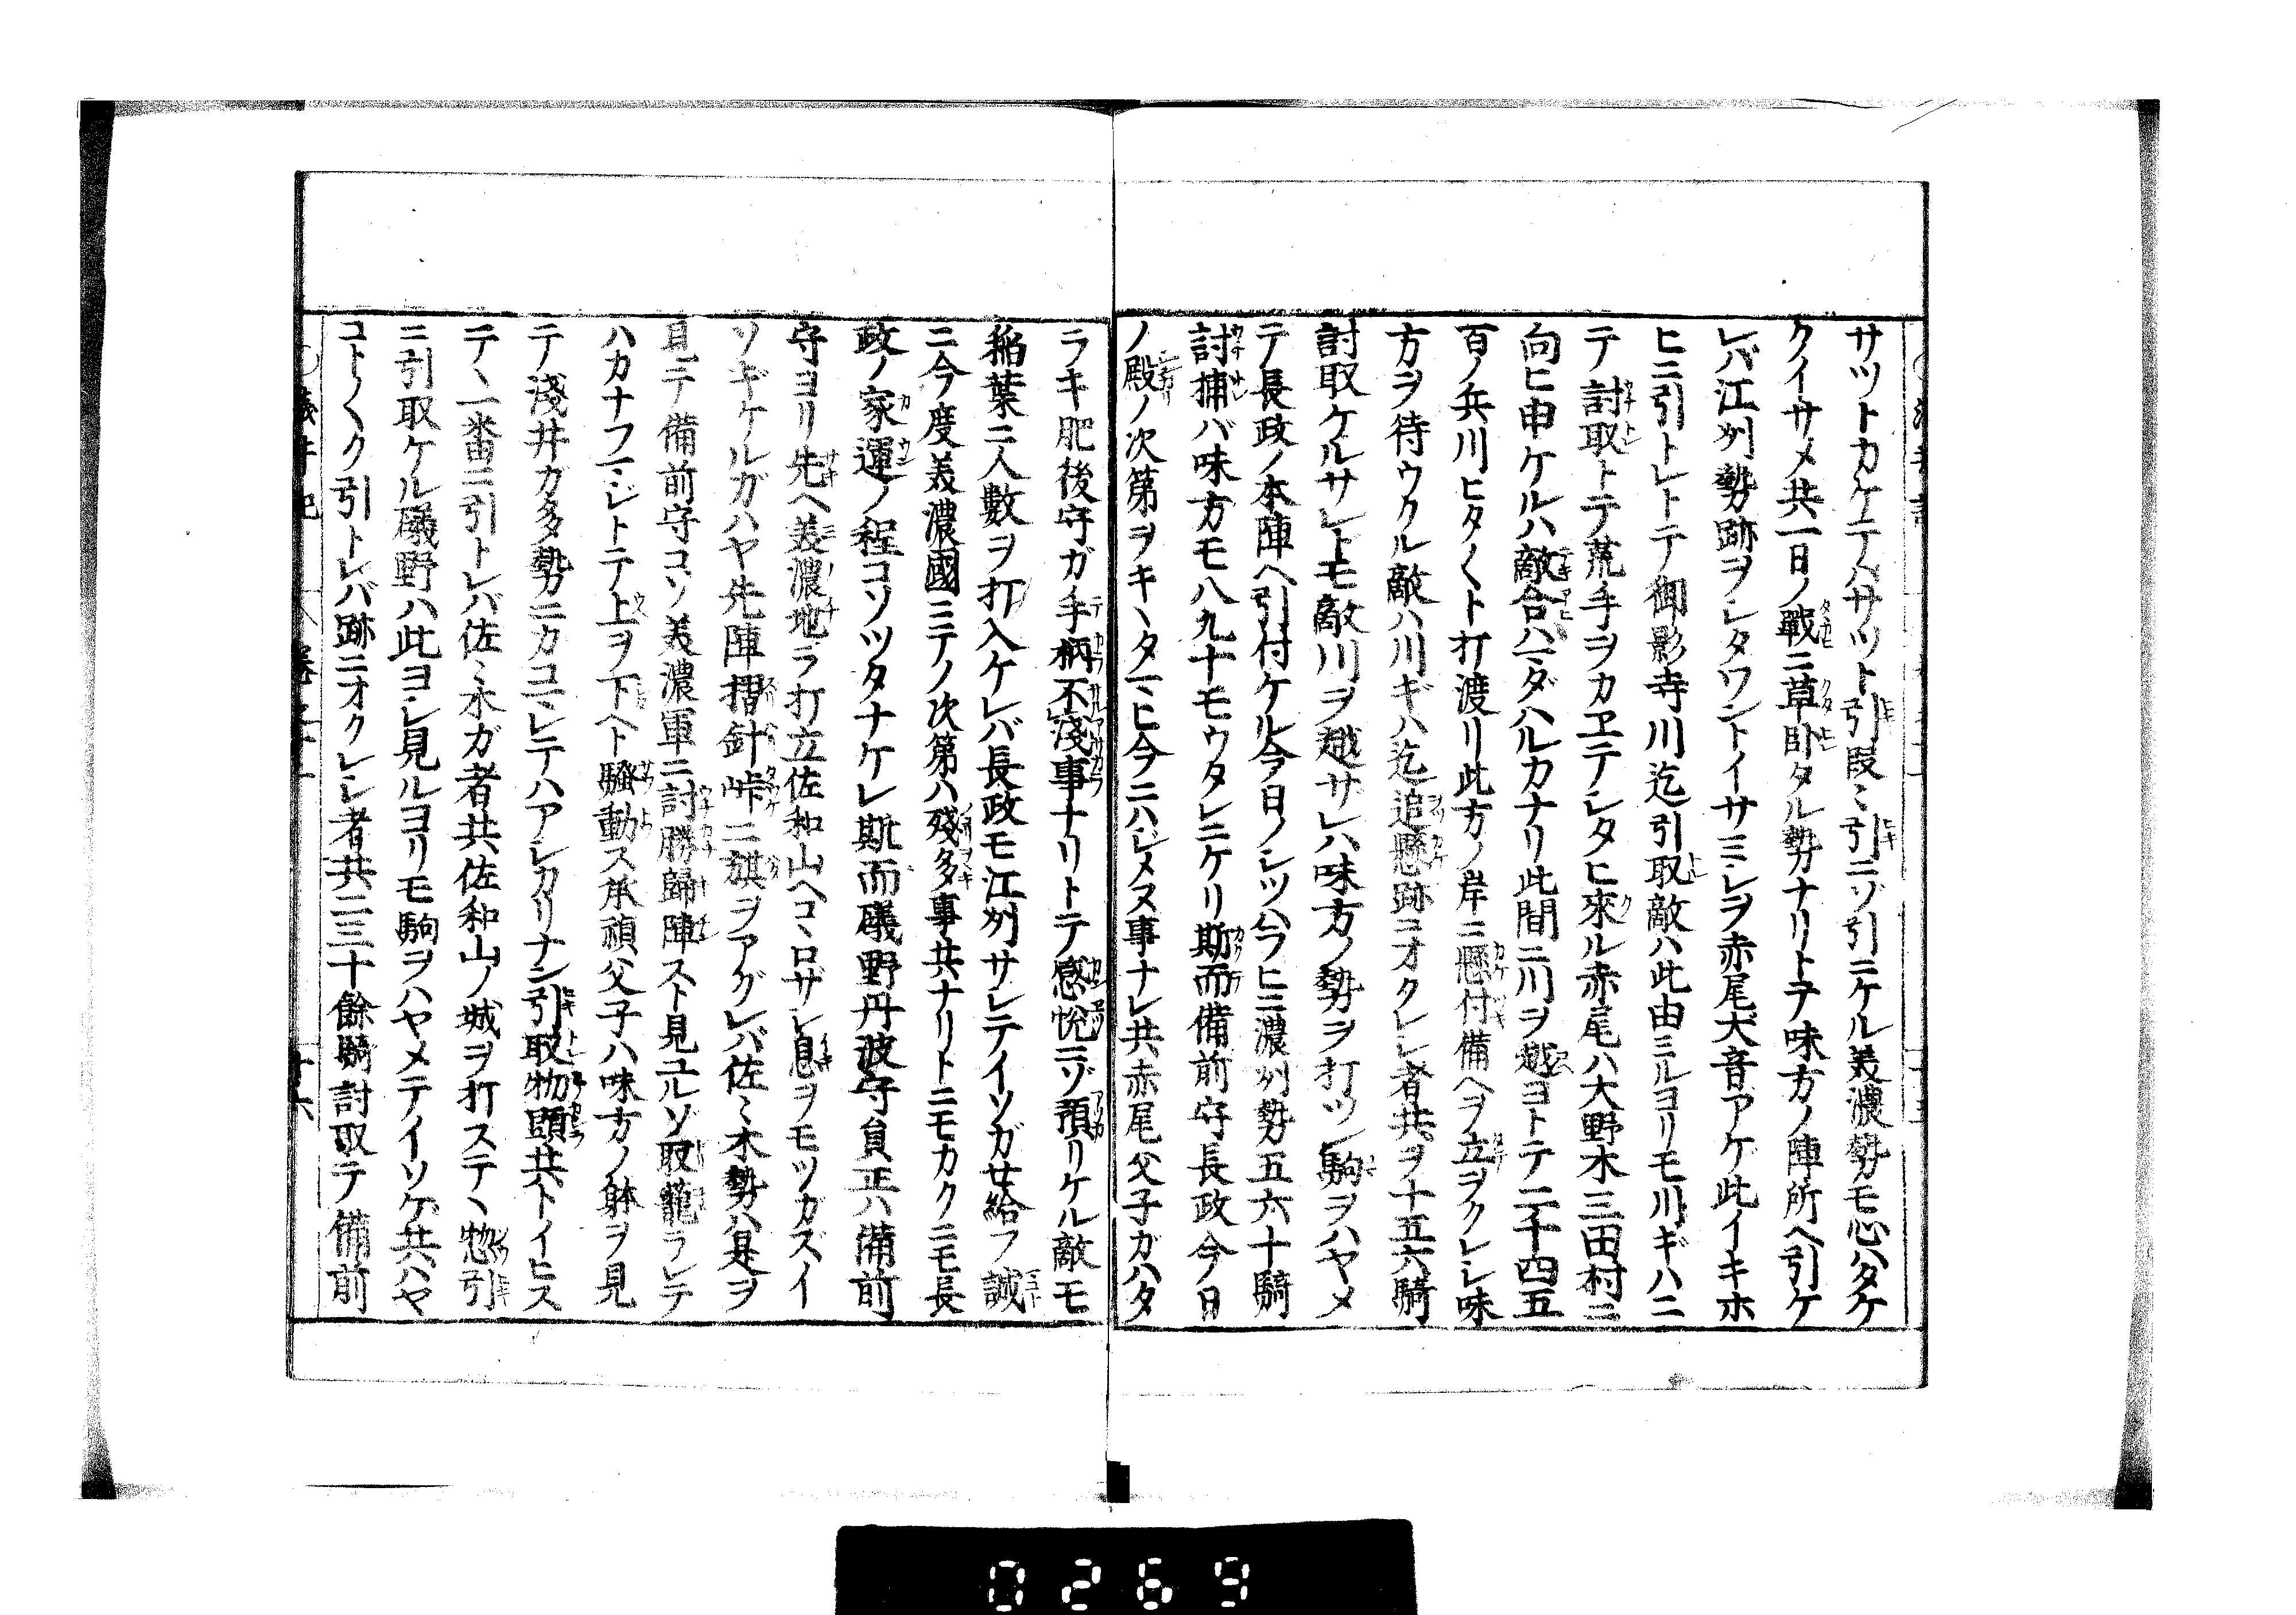 サツトカケテハサツト引段〻引ニゾ引ニケル美濃勢モ心ハタケ
クイサメ共一日ノ戰ニ草臥タル勢ナリトテ味方ノ陣所ヘ引ケ
レバ江州勢跡ヲシタワントイサミシヲ赤尾大音アケ此イキホ
ヒニ引トレトテ御影寺川迄引取敵ハ此由ミルヨリモ川ギハニ
テ討取トテ荒手ヲカヱテシタヒ來ル赤尾ハ大野木三田村ニ
向ヒ申ケルハ敵合ハマダハルカナリ此間ニ川ヲ越ヨトテ二千四五
百ノ兵川ヒタ〳〵ト打渡リ此方ノ岸ニ懸付備ヘヲ立ヲクレシ味
方ヲ待ウクル敵ハ川ギハ迄追懸跡ニオクレシ者共ヲ十五六騎
討取ケルサレトモ敵川ヲ越サレハ味方ノ勢ヲ打ツレ駒ヲハヤメ
テ長政ノ本陣ヘ引付ケル今日ノシツハラヒニ濃州勢五六十騎
討捕バ味方モ八九十モウタレニケリ斯而備前守長政今日
ノ殿ノ次第ヲキヽタマヒ今ニハジメヌ事ナレ共赤尾父子ガハタ
ラキ肥後守ガ手柄不淺事ナリトテ感悅ニゾ預リケル敵モ
稲葉ニ人數ヲ打入ケレバ長政モ江州サシテイソガせ給フ誠
ニ今度美濃國ニテノ次第ハ殘多事共ナリトニモカクニモ長
政ノ家運ノ程コソツタナケレ斯而礒野丹波守員正ハ備前
守ヨリ先ヘ美濃地ヲ打立佐和山ヘコヽロザシ息ヲモツカズイ
ソギケルガハヤ先陣摺針峠ニ旗ヲアグレバ佐〻木勢ハ是ヲ
見テ備前守コソ美濃軍ニ討勝歸陣スト見ユルソ取籠ラレテ
ハカナフマジトテ上ヲ下ヘト騷動ス承禎父子ハ味方ノ躰ヲ見
テ淺井ガ多勢ニカコマレテハアシカリナン引取物頭共トイヒス
テヽ一番ニ引トレバ佐〻木ガ者共佐和山ノ城ヲ打ステヽ惣引
ニ引取ケル礒野ハ此ヨシ見ルヨリモ駒ヲハヤメテイソゲ共ハヤ
コト〴〵ク引トレバ跡ニオクレシ者共二三十餘騎討取テ備前
0269